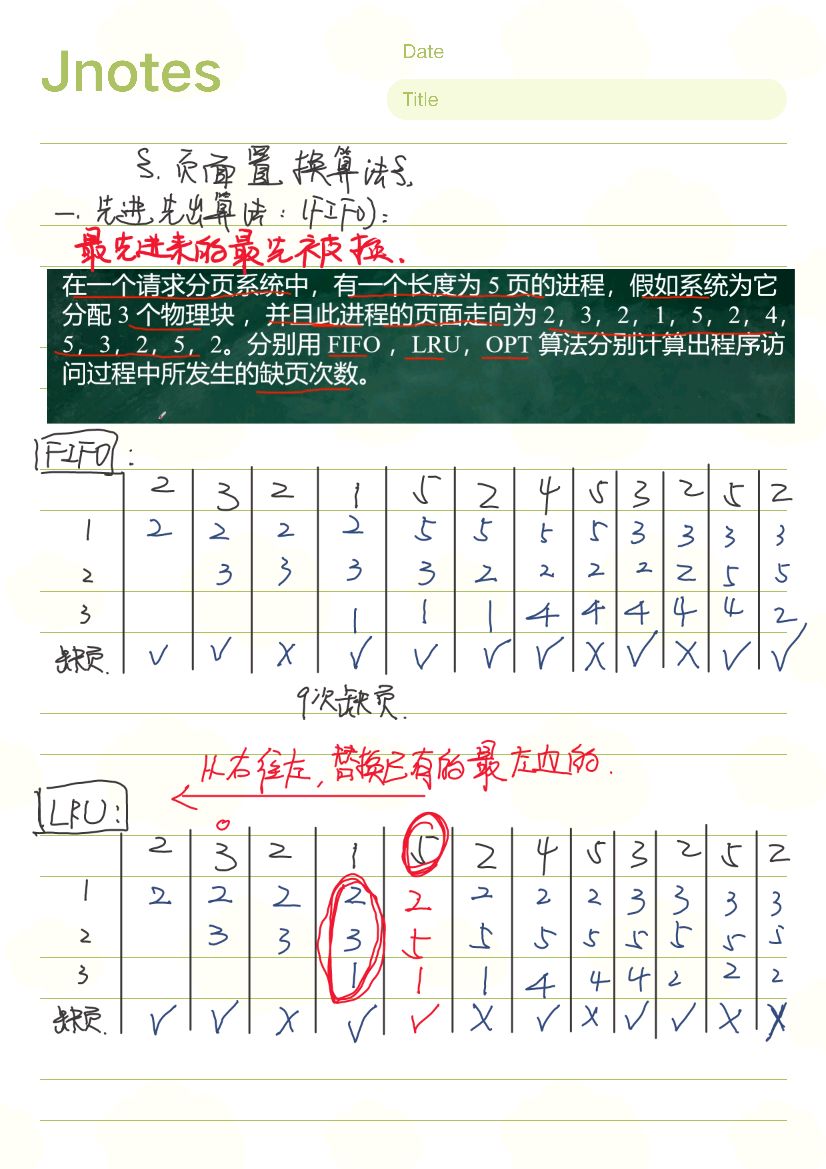 Jnotes
Date
Title
§. 页面置换算法§.
一. 先进先出算法:(FIFO):
最先进来的最先被换.
在一个请求分页系统中，有一个长度为 5 页的进程，假如系统为它
分配 3 个物理块 ，并且此进程的页面走向为 2，3，2，1，5，2，4，
5，3，2，5，2。分别用 FIFO ，LRU，OPT 算法分别计算出程序访
问过程中所发生的缺页次数。
FIFO :
2 3 2 1 5 2 4 5 3 2 5 2
1 2 2 2 2 5 5 5 5 3 3 3 3
2 3 3 3 3 2 2 2 2 2 5 5
3 1 1 1 4 4 4 4 4 2
缺页. √ √ × √ √ √ √ × √ × √ √
9次缺页.
从右往左,替换已有的最左边的.
LRU:
2 3 2 1 5 2 4 5 3 2 5 2
1 2 2 2 2 2 2 2 2 3 3 3 3
2 3 3 3 5 5 5 5 5 5 5 5
3 1 1 1 4 4 4 2 2 2
缺页. √ √ × √ √ × √ × √ √ × ×